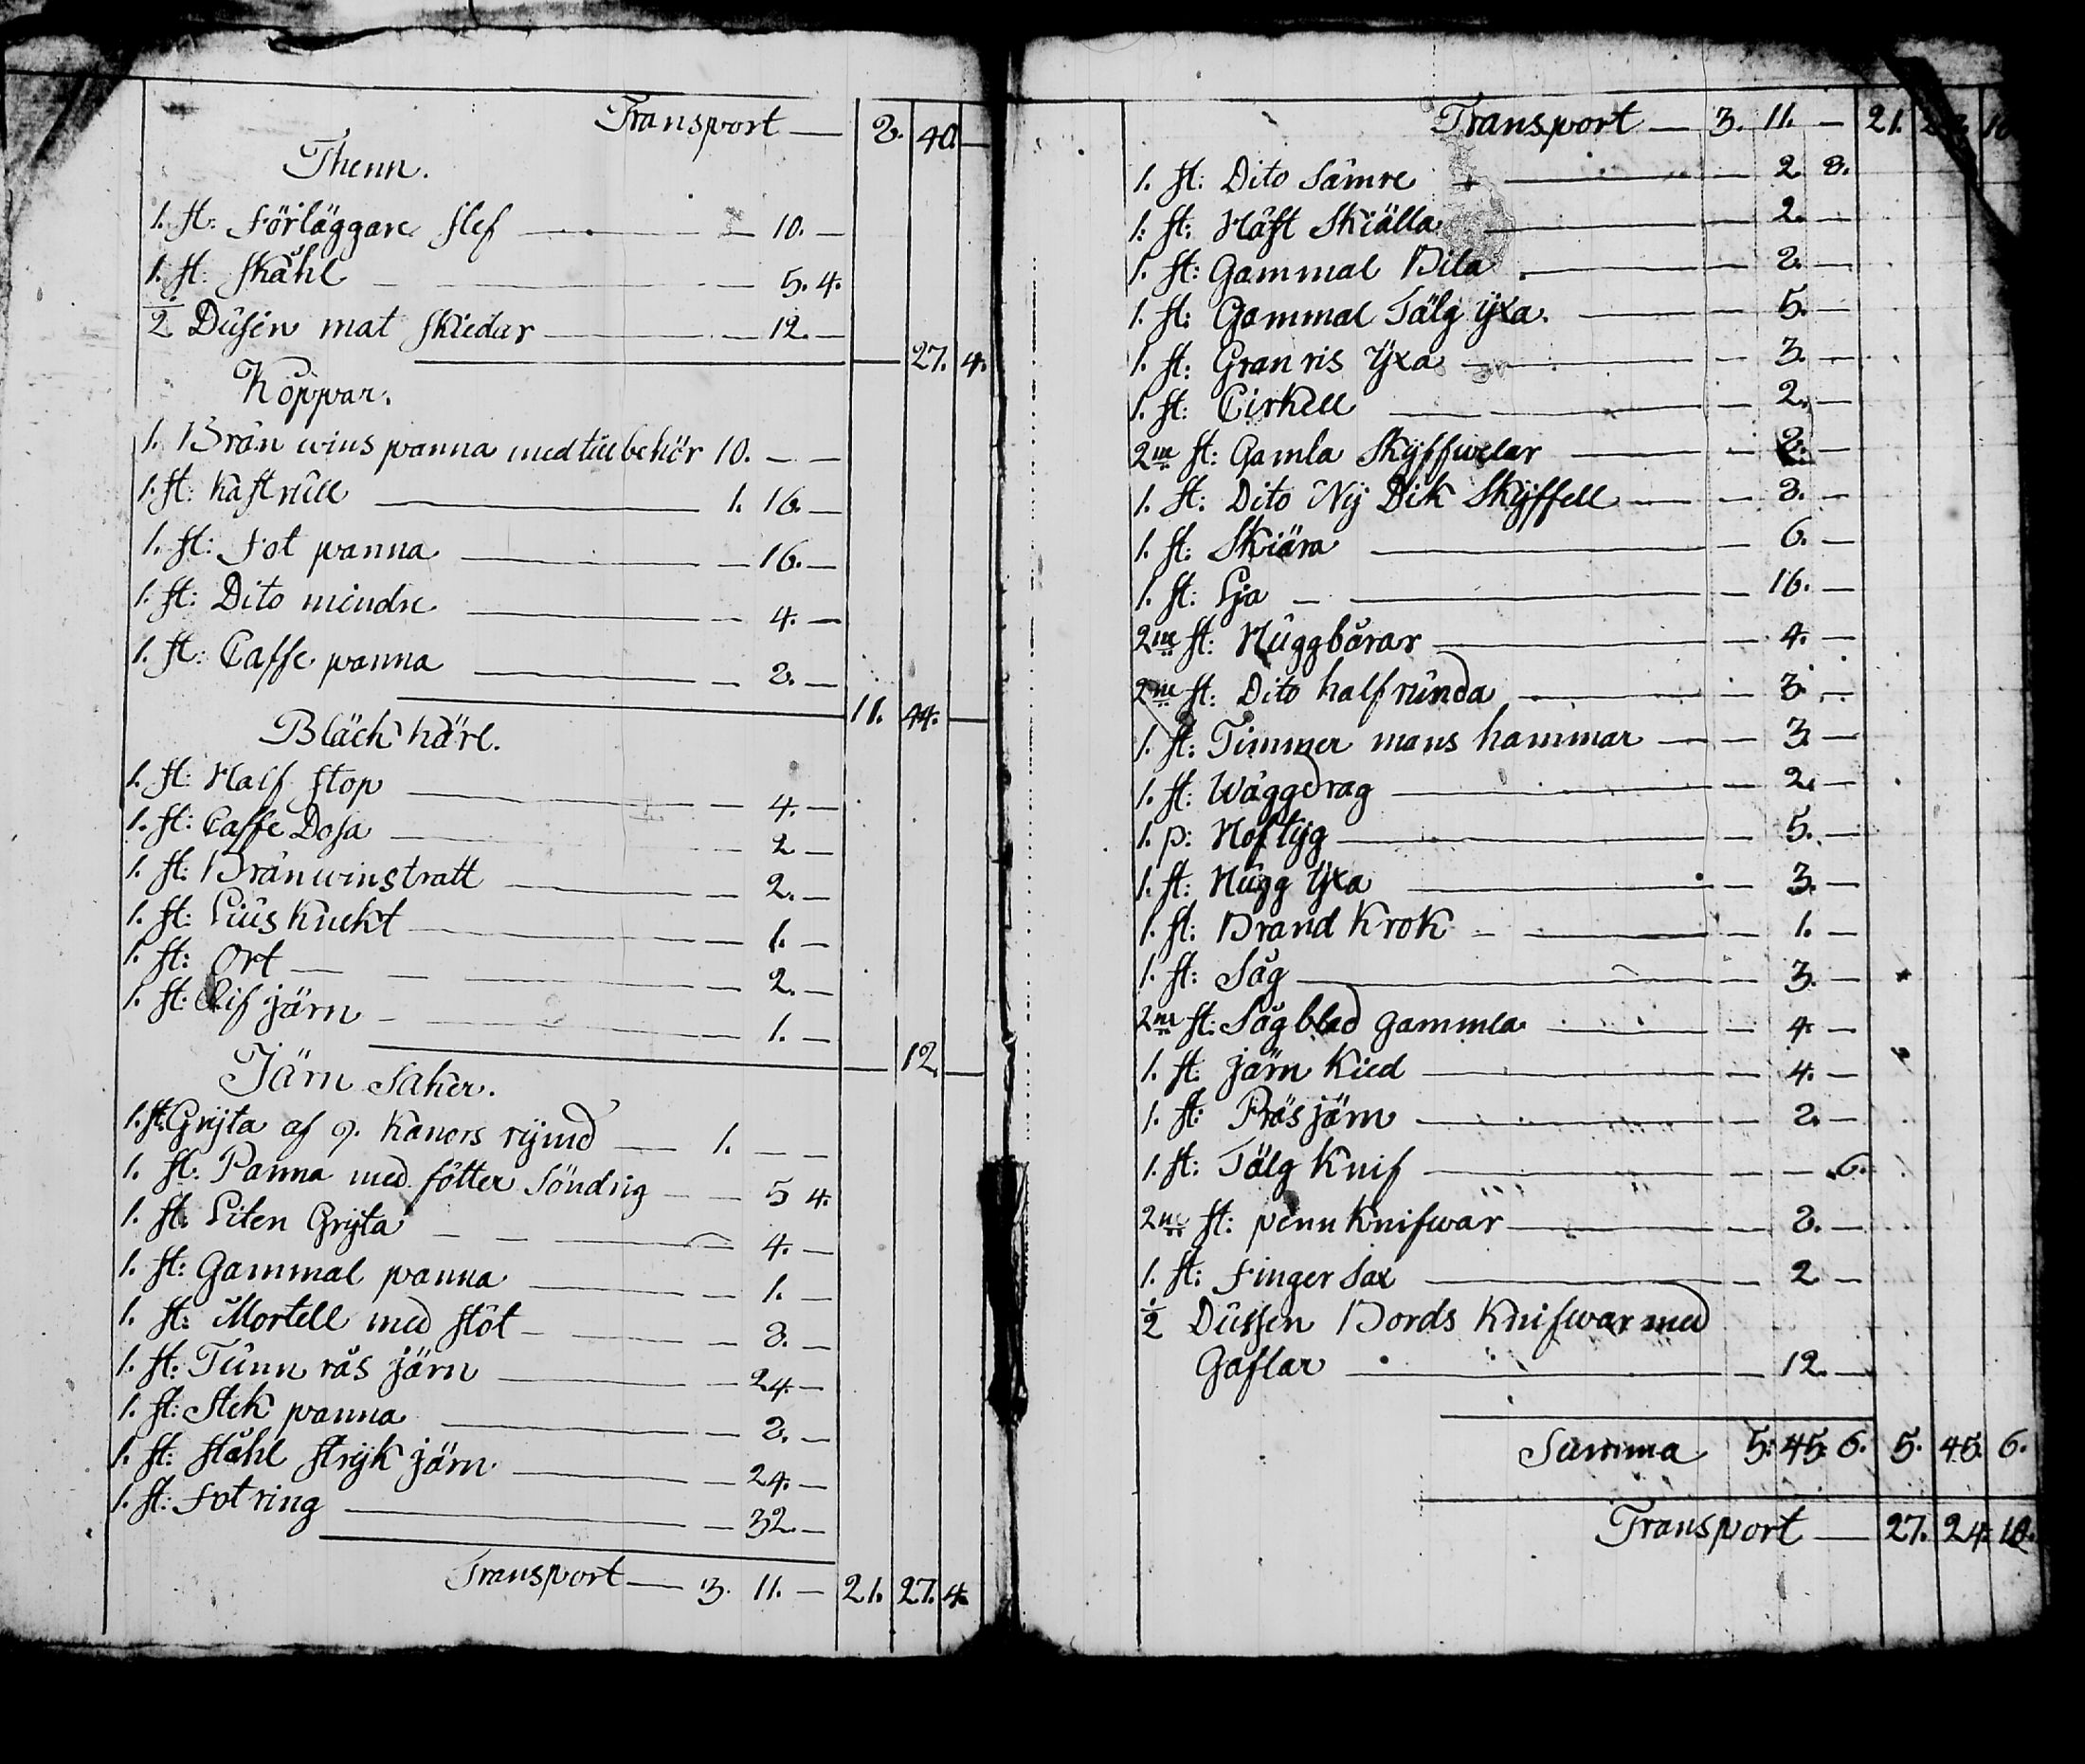 Transport — 8. 40. —
Thenn.
1. st: Förläggare slef — 10. —
1. st: Skåhl — 5. 4.
1/2 Dusin mat Skiedar — 12. —
— 27. 4.
Koppar.
1. Brän wins panna med tillbehör 10. — —
1. st: Kastrull — 1. 16. —
1. st: Fot panna — 16. —
1. st: Dito mindre — 4. —
1. st: Caffe panna — 8. —
11. 44. —
Bläck kärl.
1. st: Half stop — 4. —
1. st: Caffe Dosa — 2 —
1. st: Bränwinstratt — 2. —
1. st: Lius Knekt — 1. —
1. st: Ort — 2. —
1. st: Rif järn — 1. —
— 12. —
Järn Saker.
1. st: Gryta af 9. Kanors rymd — 1. — —
1. st: Panna med fötter Söndrig — 5 4.
1. st: Liten Gryta — 4. —
1. st: Gammal panna — 1. —
1. st: Mortell med stöt — 8. —
1. st: Tunn rås järn — 24. —
1. st: Stek panna — 8. —
1. st: Ståhl stryk järn — 24. —
1. st: Fot ring — 32. —
Transport — 3. 11. — 21. 27. 4.
Transport — 3. 11. — 21.
1. st: Dito Sämre — 2 8.
1. st: Häst Skiälla — 2. —
1. st: Gammal Bila — 8. —
1. st: Gammal Tälg yxa. — 5. —
1. st: Gran ris yxa — 3. —
1. st: Cirkell — 2. —
2ne st: Gamla Skyffwelar — 2. —
1. st: Dito Ny Dik Skyffell — 8. —
1. st: Skiära — 6. —
1. st: Lja — 16. —
2ne st: Huggbårar — 4. —
2ne st: Dito half runda — 3. —
1. st: Timmer mans hammar — 3 —
1. st: Wäggdrag — 2. —
1. p: Hoftyg — 5. —
1. st: Hugg yxa — 3. —
1. st: Brand Krok — 1. —
1. st: Såg — 3. —
2ne st: Såg blad gammla — 4 —
1. st: järn Kied — 4. —
1. st: Präs järn — 8. —
1. st: Tälg Knif — — 6.
2ne st: penn Knifwar — 8. —
1. st: Finger Sax — 2 —
1/2 Dussen Bords Knifwar med
Gaflar — 12. —
Summa 5. 45. 6. 5. 45. 6.
Transport — 27. 24. 10.